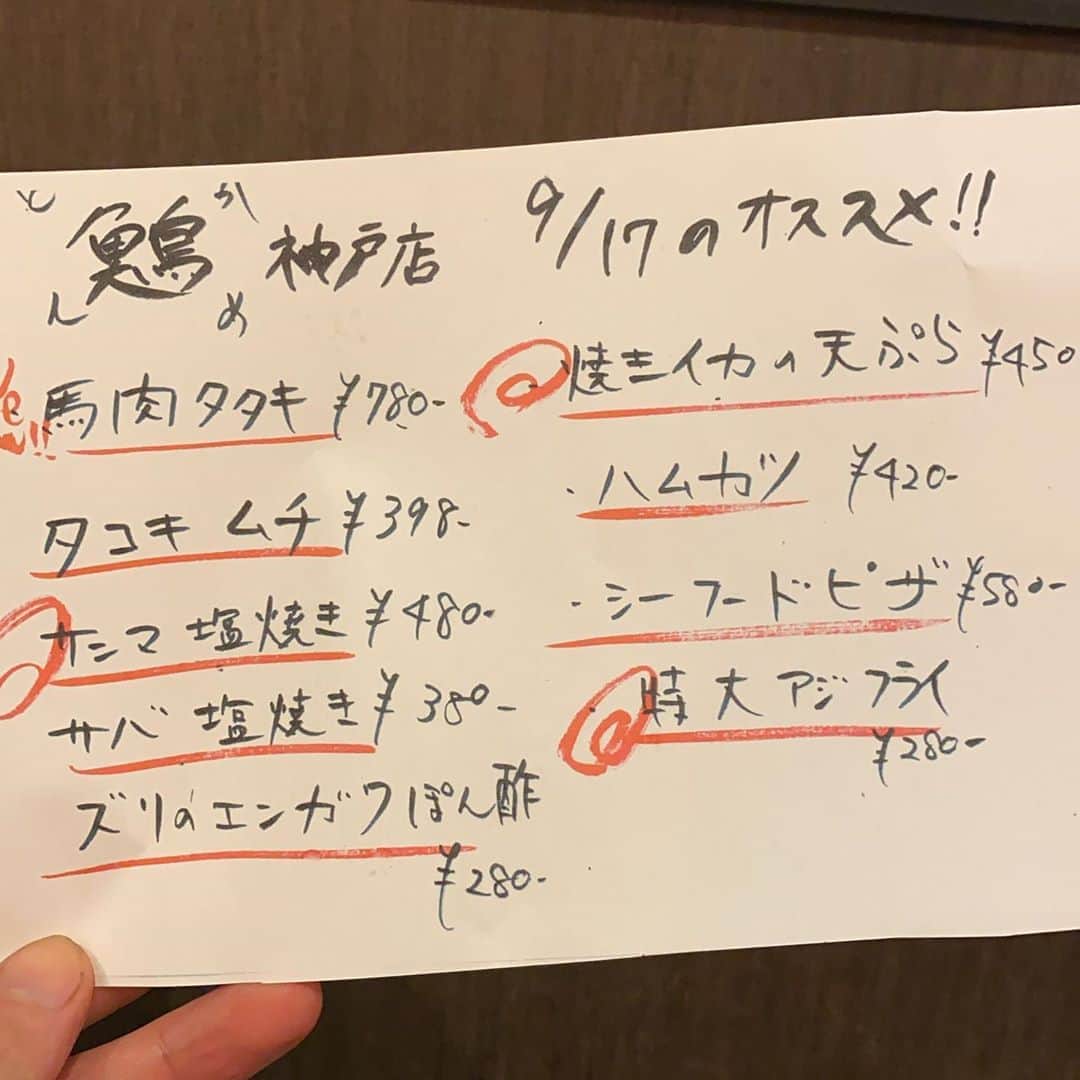 とんかめ 神戸店
9/17のオススメ!!
馬肉タタキ ¥780-
タコキムチ ¥398-
サンマ塩焼き ¥480-
サバ塩焼き ¥380-
ズリのエンガワぽん酢
¥280-
焼きイカの天ぷら ¥450
・ハムカツ ¥420-
・シーフードピザ ¥580-
・特大アジフライ
¥280-